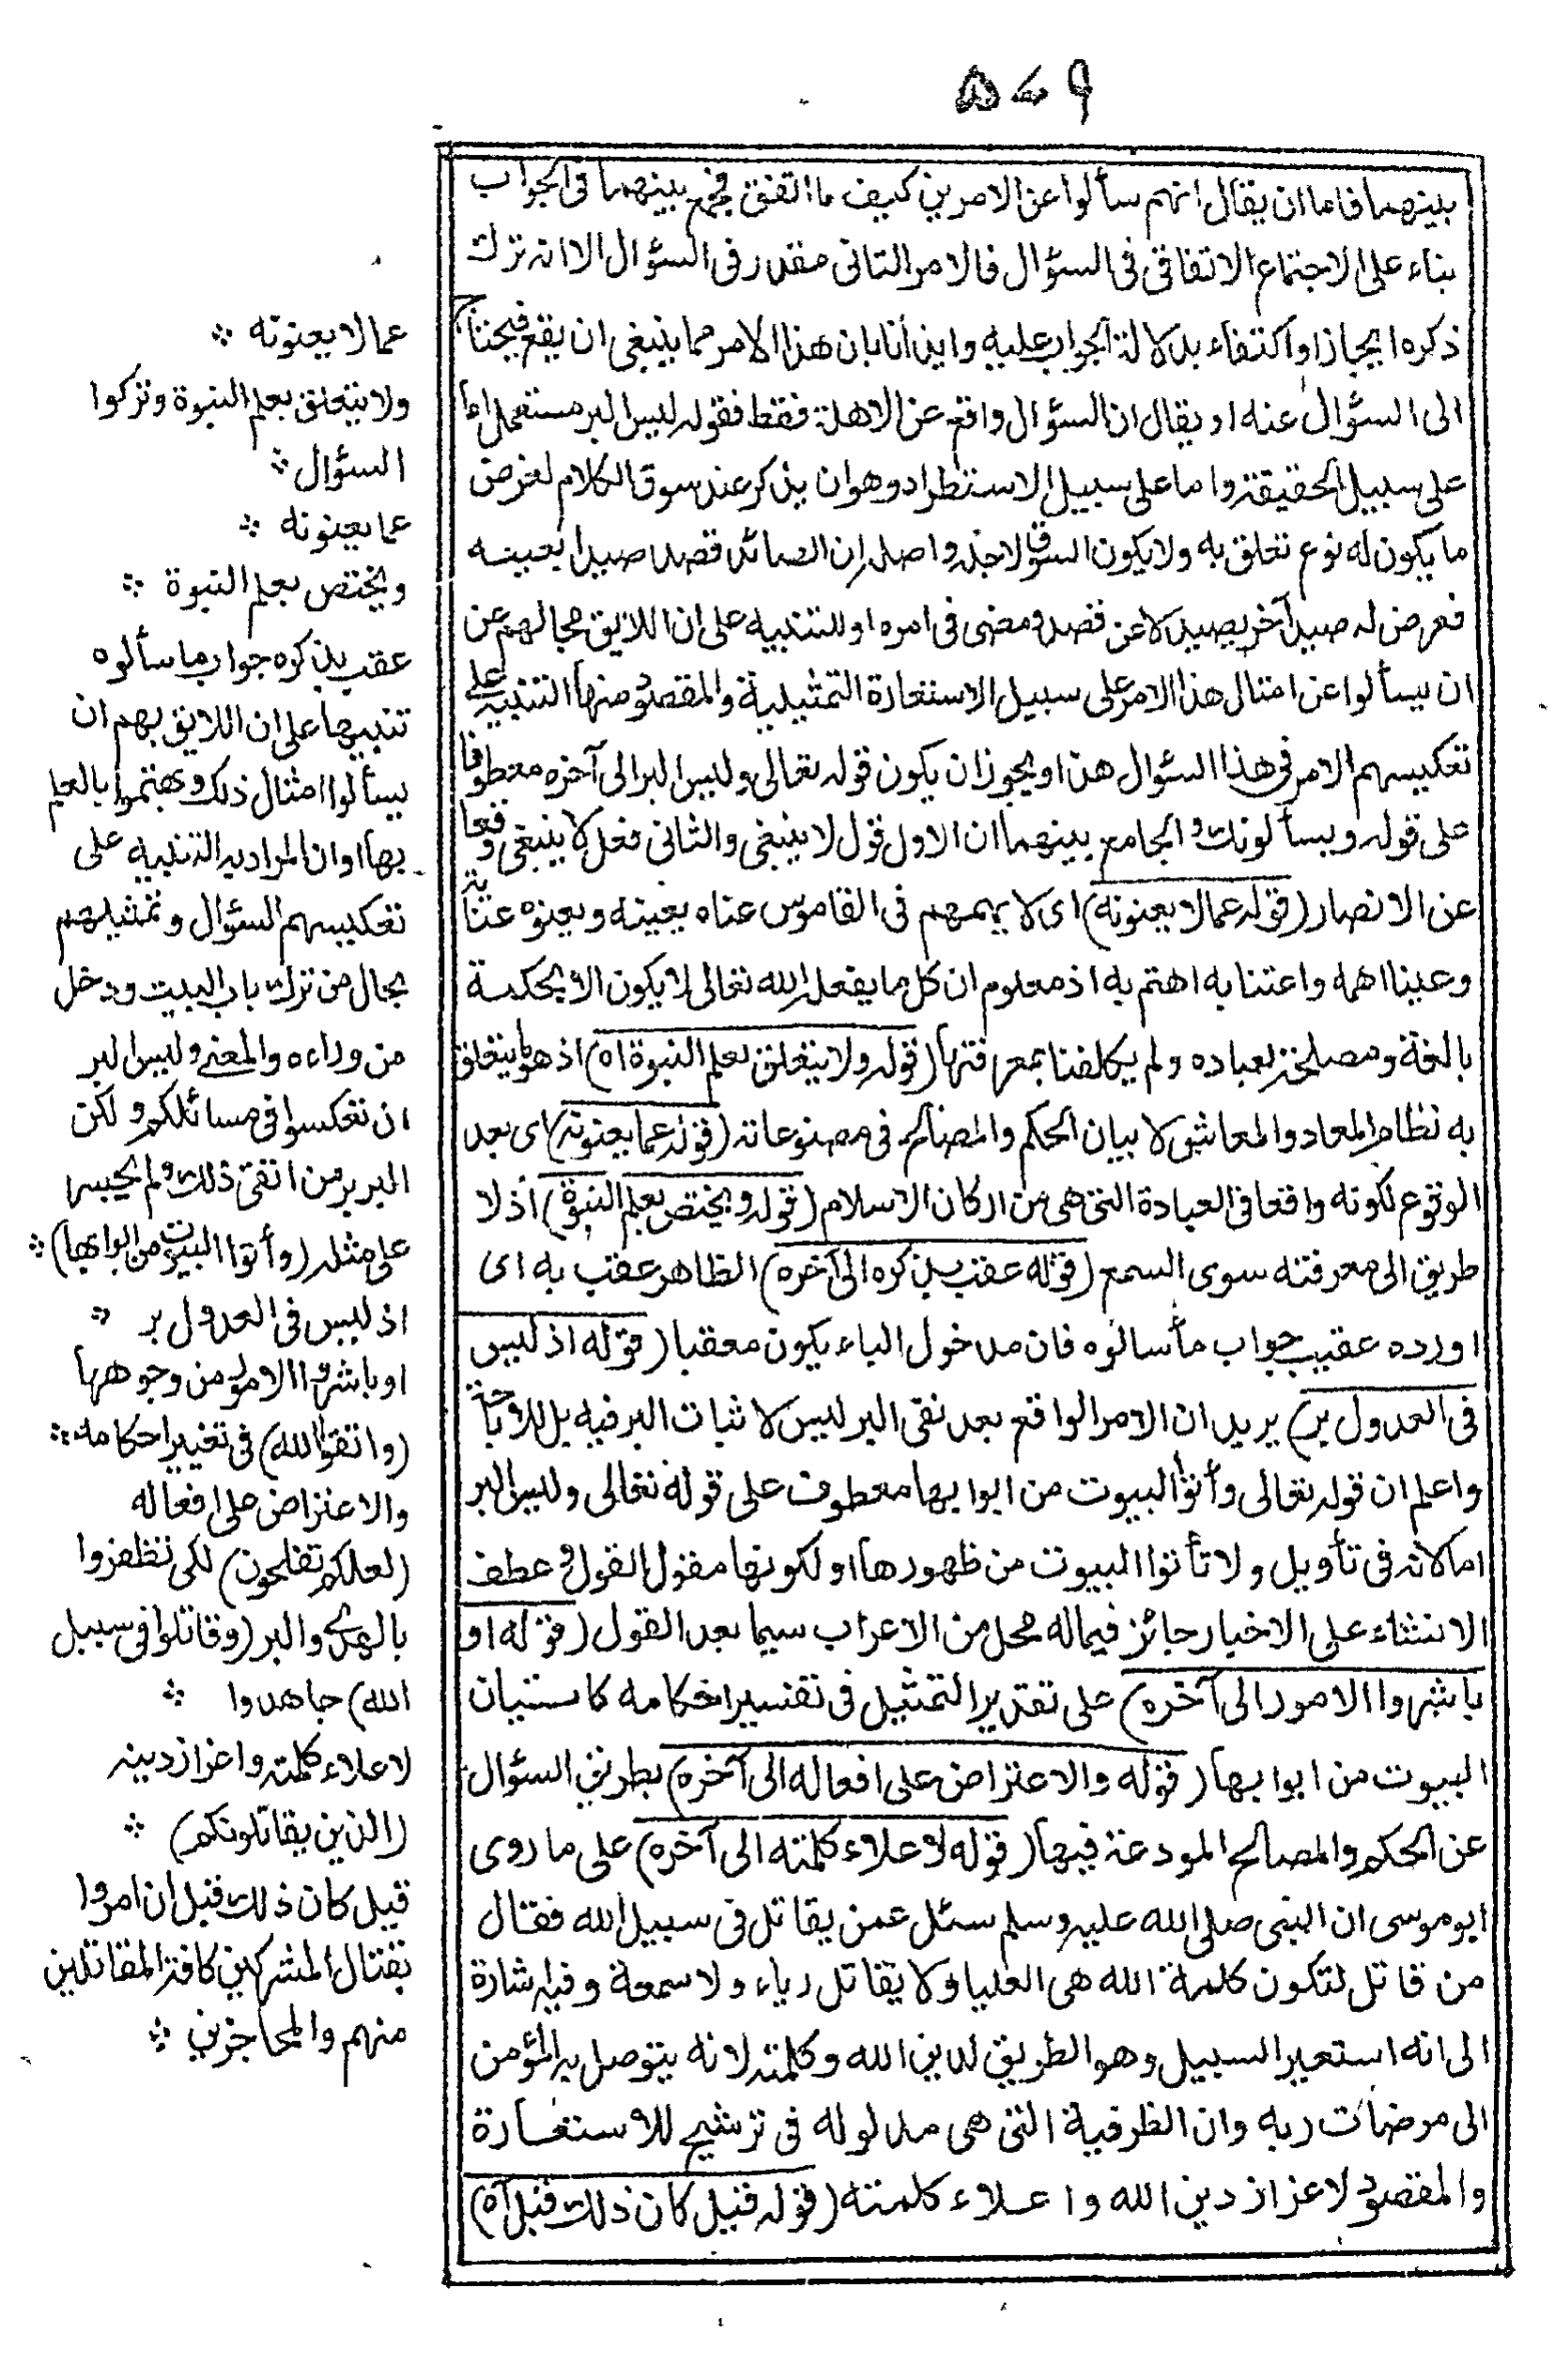 ٥٧٩
بينهما فاما ان يقال انهم سألوا عن الامرين كيف ما اتفق فجمع بينهما فى الجواب
بناء على الاجتماع الاتفاقى فى السؤال فالامر الثانى مقدر فى السؤال الا انه ترك
ذكره ايجازا واكتفاء بدلالة الجواب عليه وايذانا بان هذا الامر مما ينبغى ان يقع فيحتاج
الى السؤال عنه او يقال ان السؤال واقع عن الاهلة فقط فقوله ليس البر مستعمل اما
على سبيل الحقيقة واما على سبيل الاستطراد وهو ان يذكر عند سوق الكلام لغرض
ما يكون له نوع تعلق به ولا يكون السوق لاجله واصله ان الصائد قصد صيدا بعينه
فعرض له صيد آخر يصيد لا عن قصد ومضى فى امره او للتنبيه على ان اللائق بحالهم عن
ان يسألوا عن امثال هذا الامر على سبيل الاستعارة التمثيلية والمقصود منها التنبيه على
تعكيسهم الامر فى هذا السؤال هذا ويجوز ان يكون قوله تعالى وليس البر الى آخره معطوفا
على قوله ويسألونك والجامع بينهما ان الاول قول لا ينبغى والثانى فعل لا ينبغى وقعا
عن الانصار (قوله عما لا يعنونه) اى لا يهمهم فى القاموس عناه يعينه ويعنوه عناية
وعينا اهمه واعتنا به اهتم به اذ معلوم ان كل ما يفعل الله تعالى لا يكون الا بحكمة
بالغة ومصلحة لعباده ولم يكلفنا بمعرفتها (قوله ولا يتعلق بعلم النبوة اه) اذ هو ما يتعلق
به نظام المعاد والمعاش لا بيان الحكم والمصالح فى مصنوعاته (قوله عما يعنونه) اى بعد
الوقوع لكونه واقعا فى العبادة التى هى من اركان الاسلام (قوله ويختص بعلم النبوة) اذ لا
طريق الى معرفته سوى السمع (قوله عقب بذكره الى آخره) الظاهر عقب به اى
اورده عقيب جواب ما سألوه فان مدخول الباء يكون معقبا (قوله اذ ليس
فى العدول بر) يريد ان الامر الواقع بعد نفى البر ليس لاثبات البر فيه بل للاباحة
واعلم ان قوله تعالى وأتوا البيوت من ابوابها معطوف على قوله تعالى وليس البر
اما لانه فى تأويل ولا تأتوا البيوت من ظهورها او لكونها مقول القول وعطف
الانشاء على الاخبار جائز فيما له محل من الاعراب سيما بعد القول (قوله او
باشروا الامور الى آخره) على تقدير التمثيل فى تفسير احكامه كاستيان
البيوت من ابوابها (قوله والاعتراض على افعاله الى آخره) بطريق السؤال
عن الحكم والمصالح المودعة فيها (قوله لاعلاء كلمته الى آخره) على ما روى
ابو موسى ان النبى صلى الله عليه وسلم سئل عمن يقاتل فى سبيل الله فقال
من قاتل لتكون كلمة الله هى العليا ولا يقاتل رياء ولا سمعة وفيه اشارة
الى انه استعير السبيل وهو الطريق لدين الله وكلمته لانه يتوصل به المؤمن
الى مرضات ربه وان الظرفية التى هى مدلوله فى ترشيح للاستعارة
والمقصود لاعزاز دين الله واعلاء كلمته (قوله قيل كان ذلك قبل اه)
عما لا يعنونه ⁘
ولا يتعلق بعلم النبوة وتركوا
السؤال ⁘
عما يعنونه ⁘
ويختص بعلم النبوة ⁘
عقب بذكره جواب ما سألوه
تنبيها على ان اللايق بهم ان
يسألوا امثال ذلك ويهتموا بالعلم
بها او ان المراد به التنبيه على
تعكيسهم السؤال وتمثيلهم
بحال من ترك باب البيت ودخل
من وراءه والمعنى وليس البر
ان تعكسوا فى مسائلكم ولكن
البر بر من اتقى ذلك ولم يجسر
على مثله (وأتوا البيوت من ابوابها) ⁘
اذ ليس فى العدول بر ⁘
او باشروا الامور من وجوهها
(واتقوا الله) فى تغيير احكامه ⁘
والاعتراض على افعاله
(لعلكم تفلحون) لكى تظفروا
بالهدى والبر (وقاتلوا فى سبيل
الله) جاهدوا ⁘
لاعلاء كلمته واعزاز دينه
(الذين يقاتلونكم) ⁘
قيل كان ذلك قبل ان امروا
بقتال المشركين كافة المقاتلين
منهم والمحاجزين ⁘